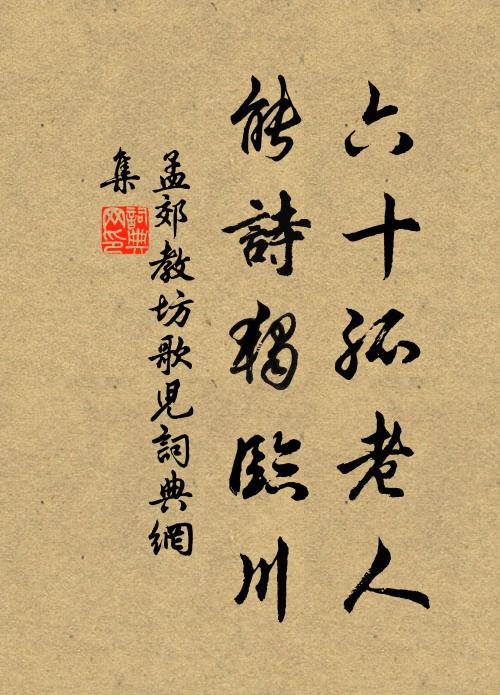 六十孤老人
能詩獨臨川
孟郊教坊歌児詞典網
集
詞典网印